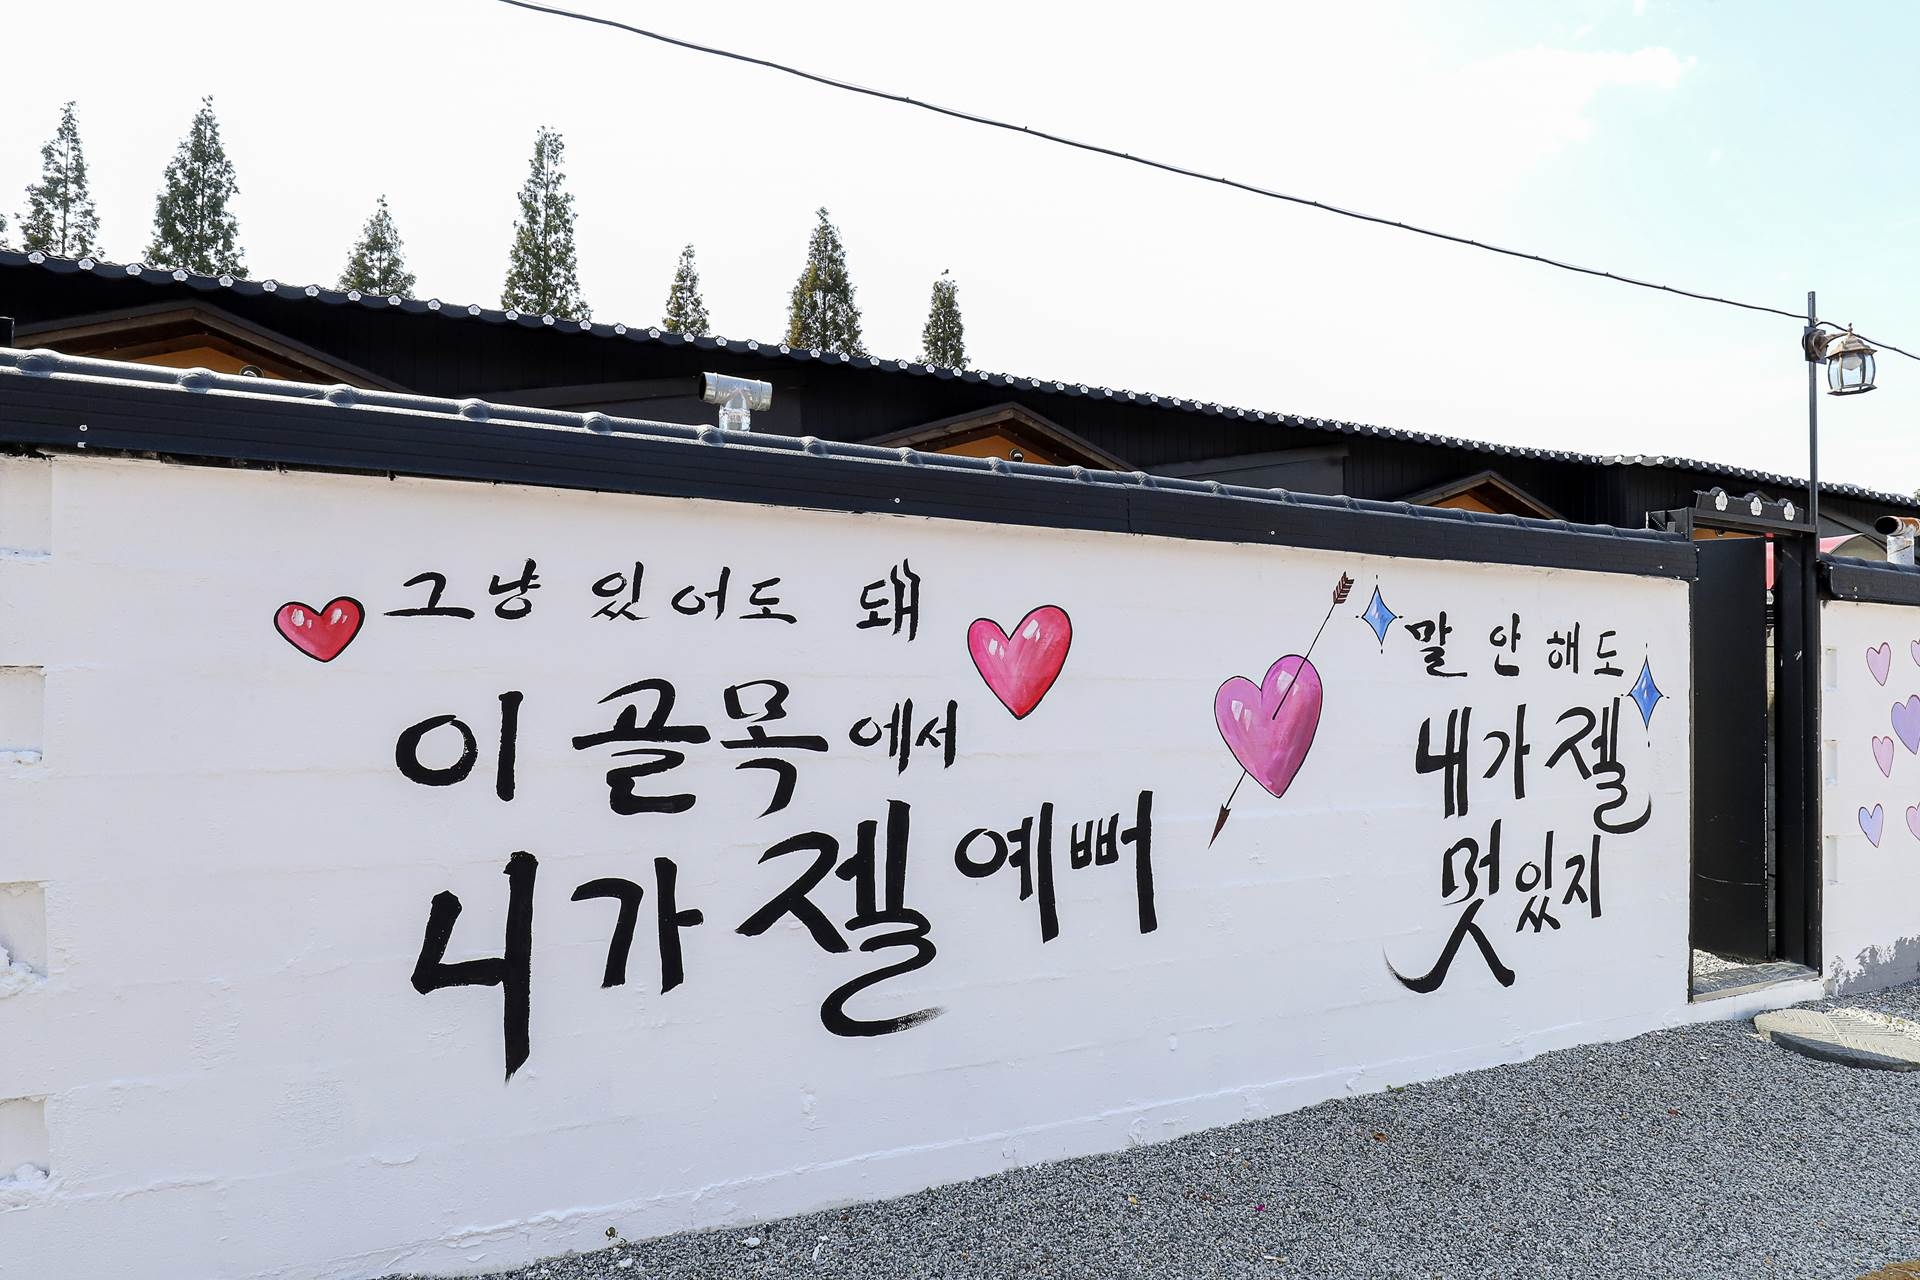 그냥 있어도 돼
이 골목에서
니가 젤 예뻐
말 안해도
내가 젤
멋있지